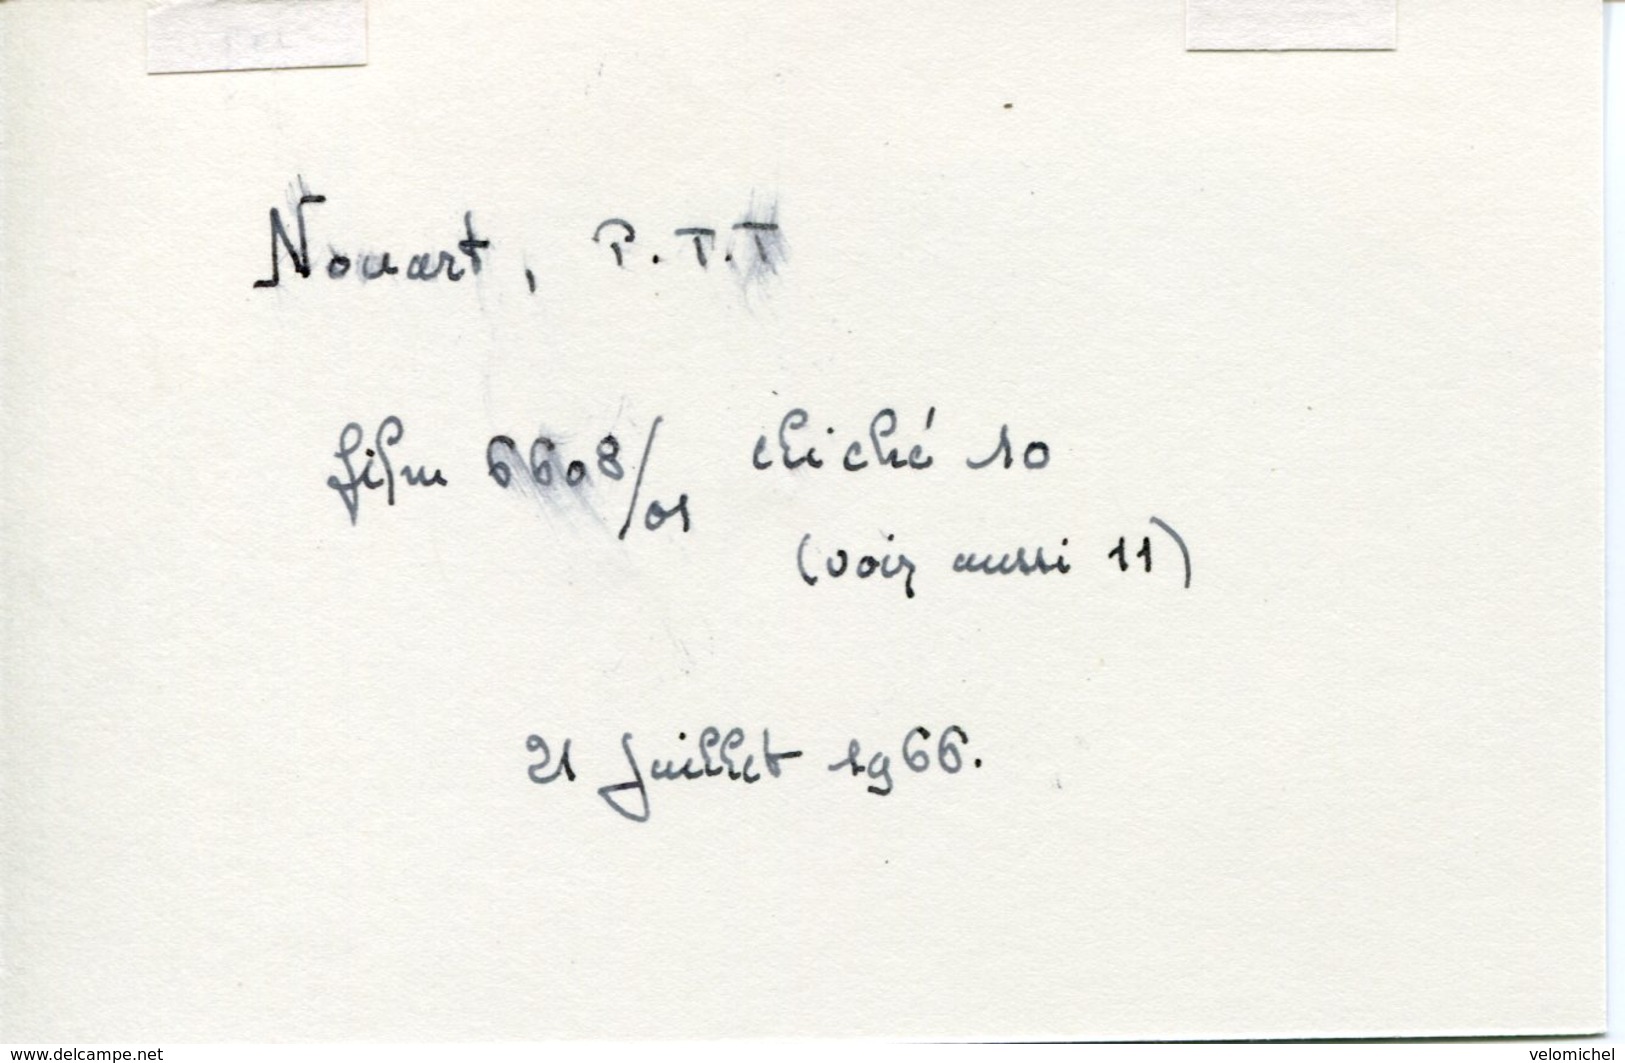 Nouart, P.T.T
film 6608/01 cliché 10
(voir aussi 11)
21 Juillet 1966.
www.delcampe.net
velomichel